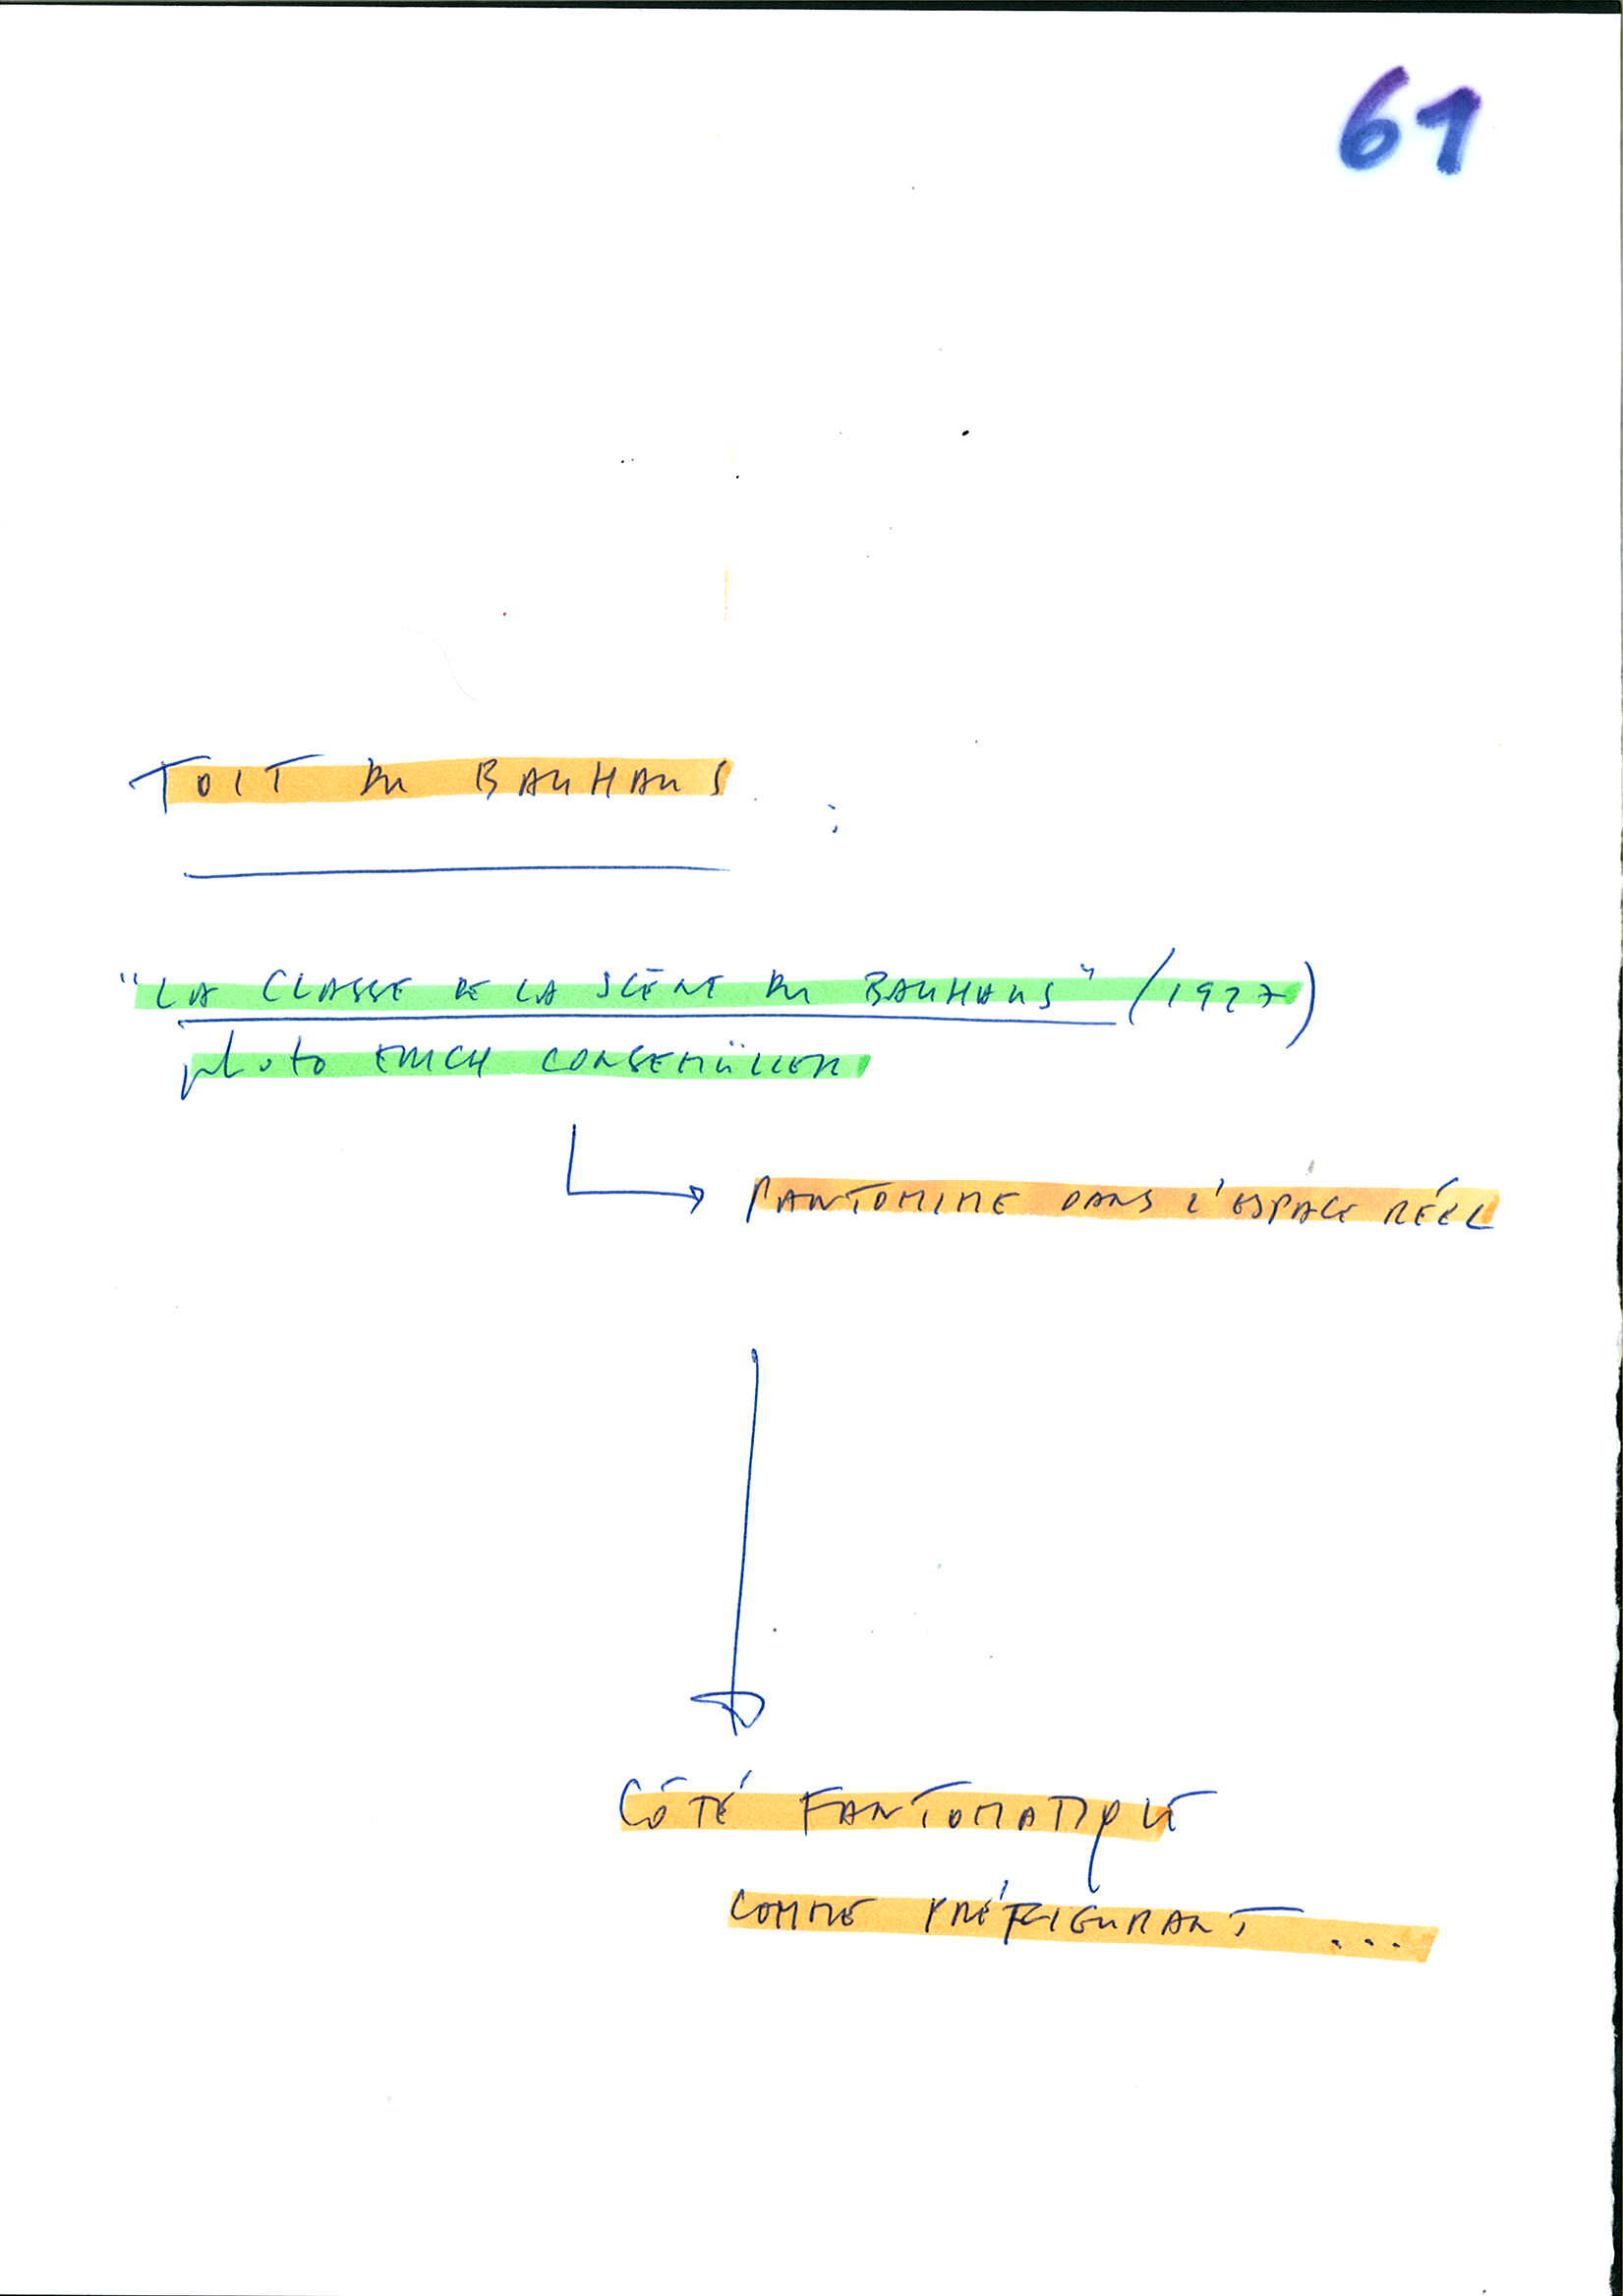 61
TOIT DU BAUHAUS :
"LA CLASSE DE LA SCÈNE DU BAUHAUS" (1927)
photo ERICH CONSEMÜLLER
PANTOMIME DANS L'ESPACE RÉEL
CÔTÉ FANTOMATIQUE
COMME PRÉFIGURANT ...